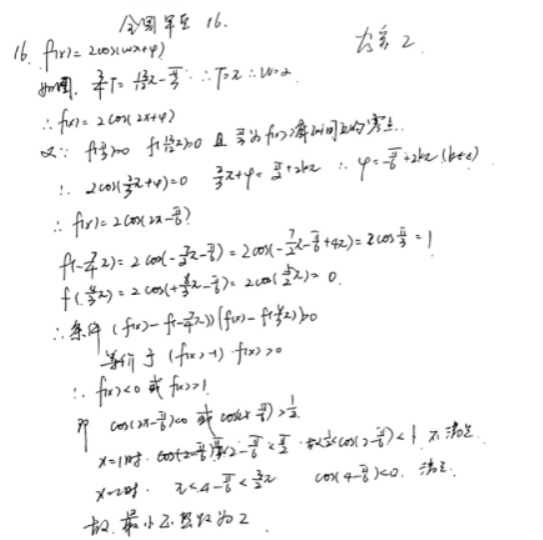 全国甲卷 16.
16. f(x) = 2cos(wx+φ) 答案 2
如图. 3/4 T = 13/12 π - π/3 ∴ T=π ∴ w=2
∴ f(x) = 2cos(2x+φ)
又∵ f(π/3)=0 f(13/12 π)>0 且 π/3 为 f(x)
∴ 2cos(2/3 π+φ)=0 2/3 π+φ = π/2 +2kπ ∴ φ = -π/6 +2kπ (k∈z)
∴ f(x) = 2cos(2x - π/6)
f(-7/4 π) = 2cos(-7/2 π - π/6) = 2cos(-7/2 π - π/6 + 4π) = 2cos π/3 = 1
f(4/3 π) = 2cos(+8/3 π - π/6) = 2cos(5/2 π) = 0.
∴ 条件 (f(x) - f(-7/4 π))(f(x) - f(4/3 π))>0
等价于 (f(x) -1) · f(x) >0
∴ f(x)<0 或 f(x)>1.
即 cos(2x - π/6)<0 或 cos(2x - π/6) > 1/2.
x=1时. 2 - π/6 < π/2 1/2<cos(2 - π/6) < 1 不满足.
x=2时. π < 4 - π/6 < 3/2 π cos(4 - π/6)<0. 满足.
故 最小正整数为 2